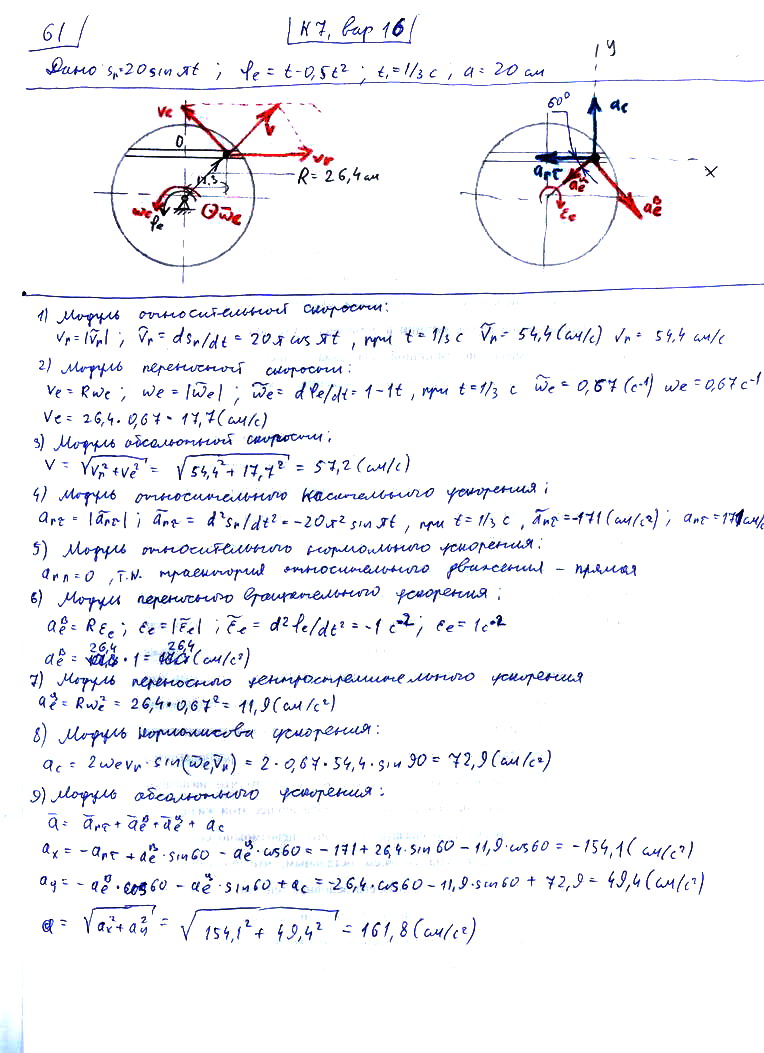 61
К7, вар 16
Дано Sr=20 sin πt ; φe = t-0,5t² ; t₁=1/3 с , a=20 см
ve
v
vr
O
17.3
R=26,4 см
ωe
φe
(-) ω̃e
60°
y
ac
x
arτ
aeц
aeв
εe
1) Модуль относительной скорости:
vr=|ṽr| ; ṽr = dsr/dt = 20π cos πt , при t=1/3 с ṽr = 54,4 (см/с) vr = 54,4 см/с
2) Модуль переносной скорости:
ve = Rωe ; ωe = |ω̃e| ; ω̃e = dφe/dt = 1-1t , при t=1/3 с ω̃e = 0,67 (с⁻¹) ωe = 0,67 с⁻¹
ve = 26,4 · 0,67 = 17,7 (см/с)
3) Модуль абсолютной скорости:
v = √(vr² + ve²) = √(54,4² + 17,7²) = 57,2 (см/с)
4) Модуль относительного касательного ускорения:
arτ = |ãrτ| ; ãrτ = d²sr/dt² = -20π² sin πt , при t=1/3 с , ãrτ=-171 (см/с²) ; arτ=171 см/с
5) Модуль относительного нормального ускорения:
arn=0 , т.к. траектория относительного движения – прямая
6) Модуль переносного вращательного ускорения:
aeв = Rεe ; εe = |ε̃e| ; ε̃e = d²φe/dt² = -1 с⁻² ; εe = 1 с⁻²
aeв = 26,4 · 1 = 26,4 (см/с²)
7) Модуль переносного центростремительного ускорения
aeц = Rωe² = 26,4 · 0,67² = 11,9 (см/с²)
8) Модуль кориолисова ускорения:
ac = 2ωevr · sin(ω̄e,v̄r) = 2 · 0,67 · 54,4 · sin 90 = 72,9 (см/с²)
9) Модуль абсолютного ускорения:
ā = ārτ + āeв + āeц + ac
ax = -arτ + aeв · sin60 - aeц · cos60 = -171 + 26,4 · sin 60 - 11,9 · cos60 = -154,1 (см/с²)
ay = -aeв · cos60 - aeц · sin60 + ac = -26,4 · cos60 - 11,9 · sin60 + 72,9 = 49,4 (см/с²)
a = √(ax² + ay²) = √(154,1² + 49,4²) = 161,8 (см/с²)